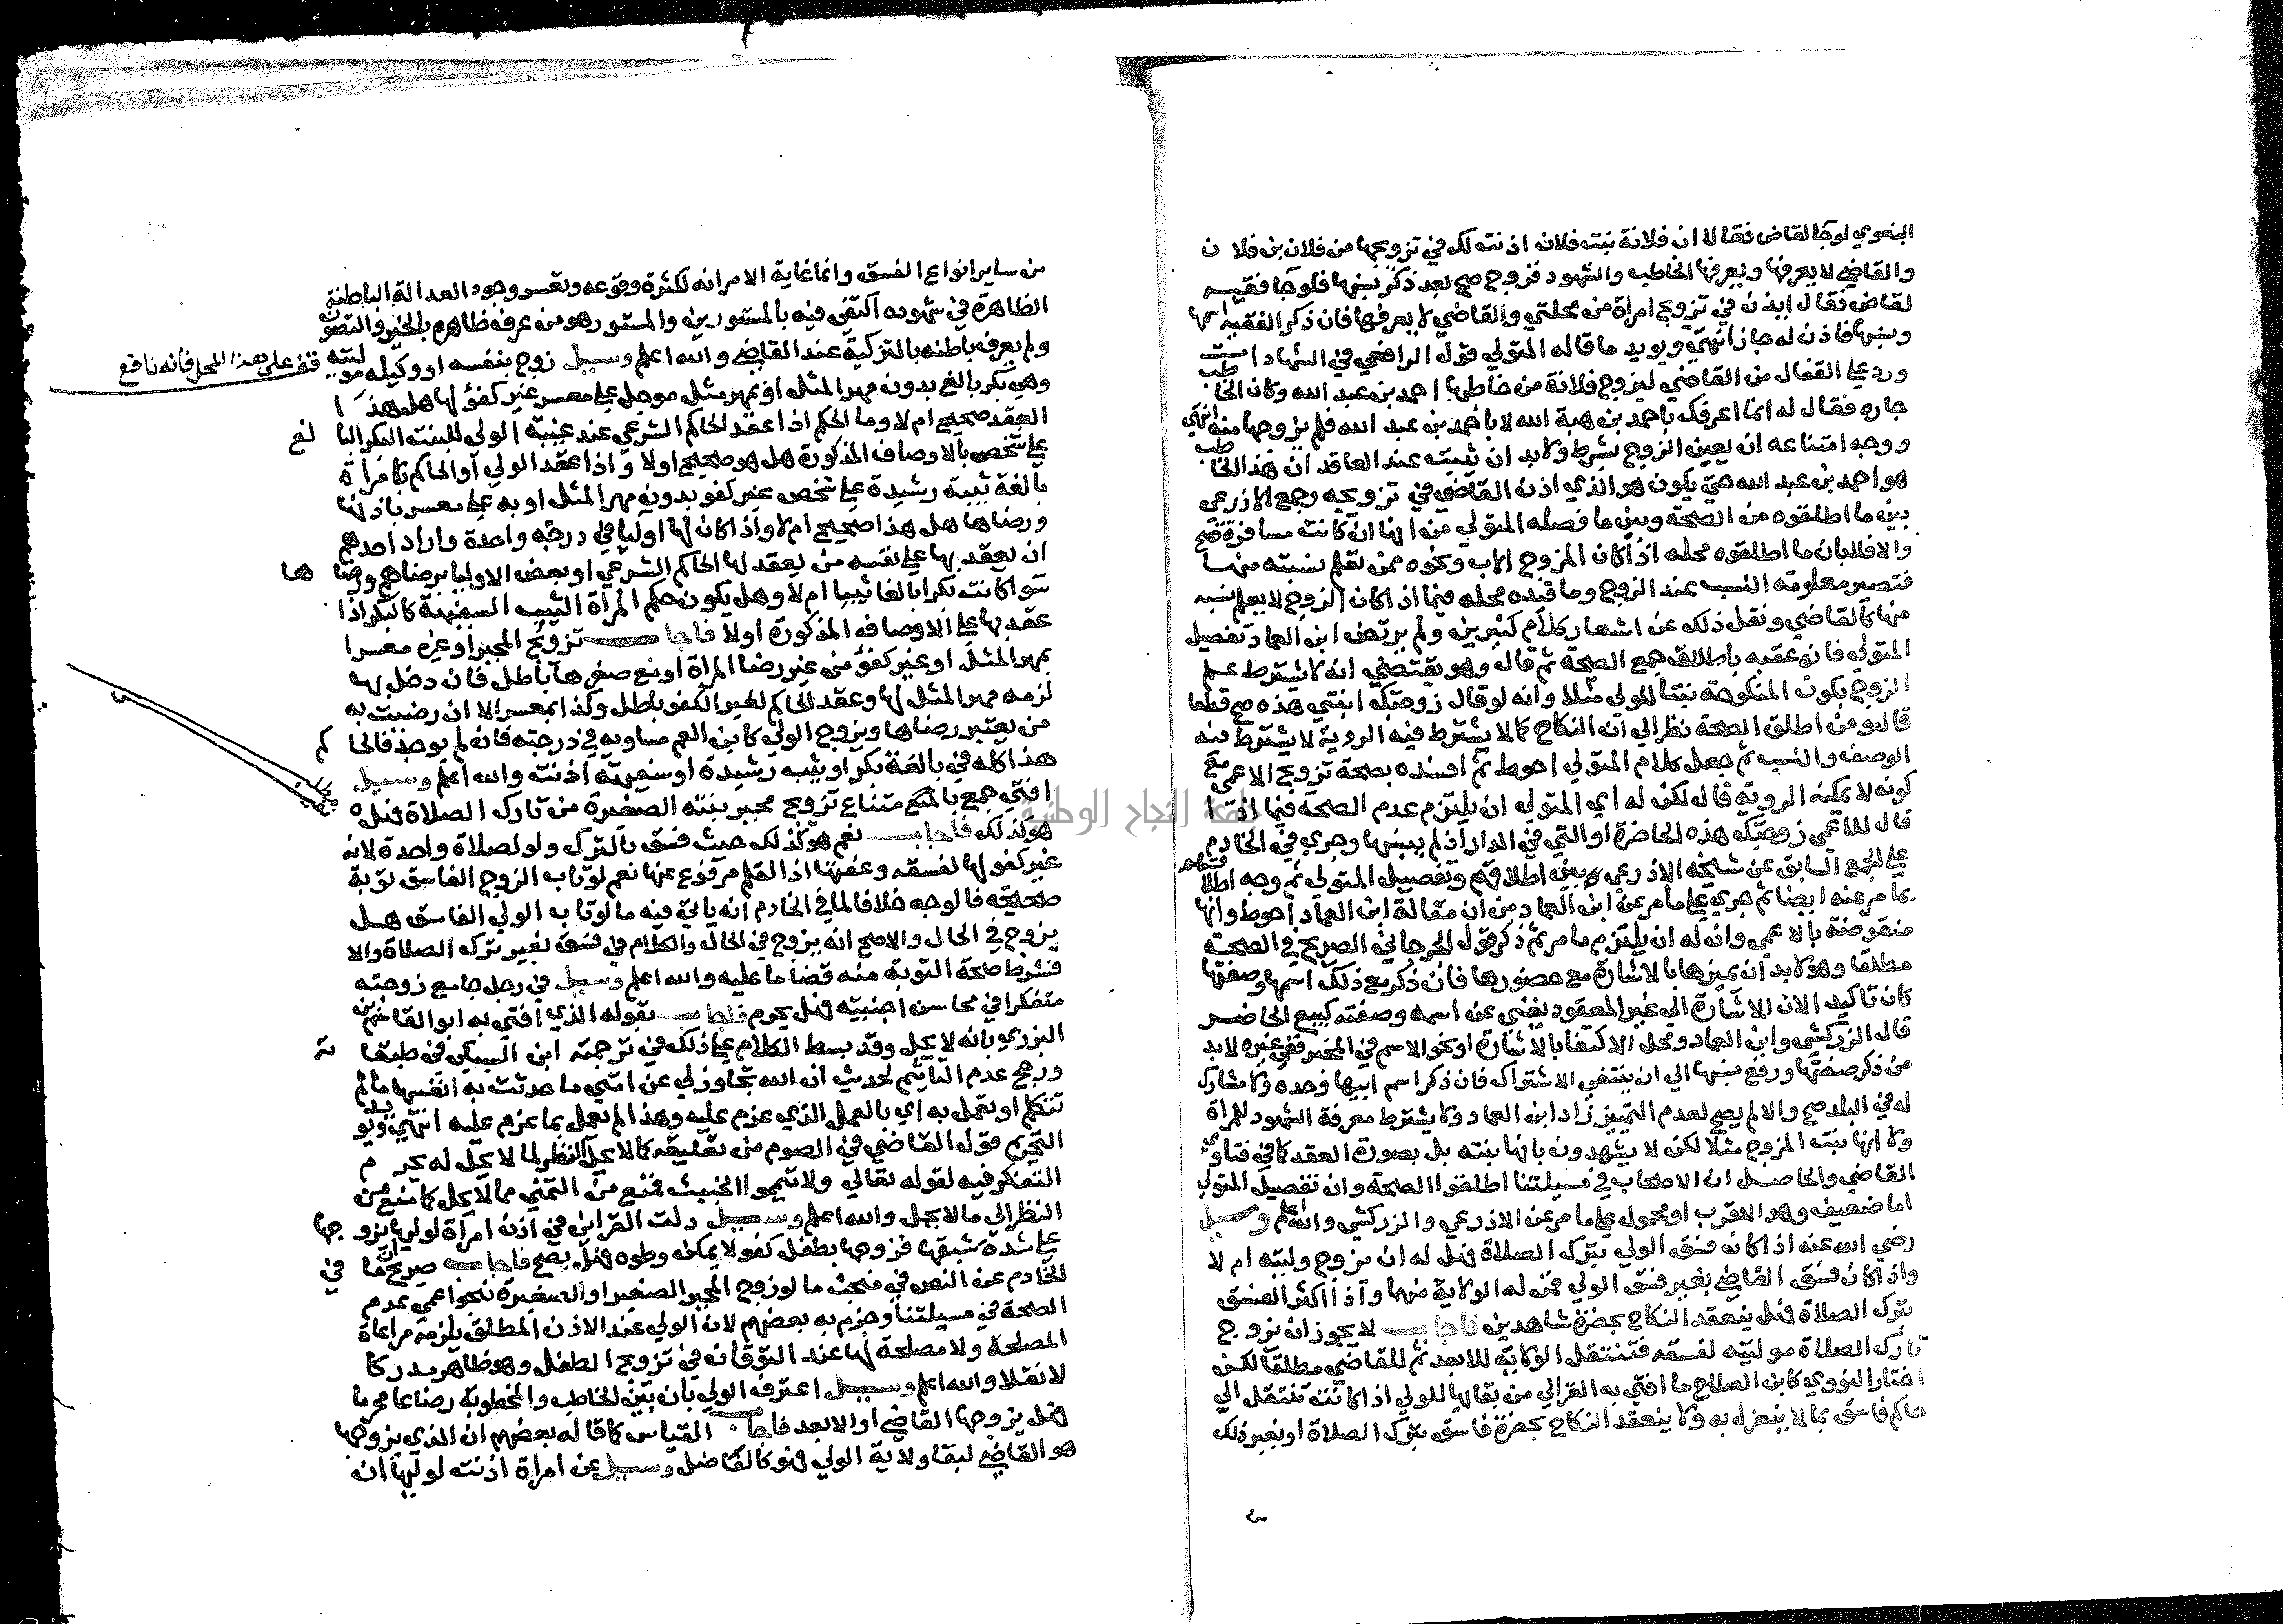 البغوي لو جا لقاض فقال له ان فلانة بنت فلان اذنت لك في تزويجها من فلان بن فلان
والقاضي لا يعرفها ويعرفها الخاطب والشهود فزوج صح بعد ذكر نسبها فلو جا فقيه
لقاض فقال ايذن في تزويج امراة من محلتي والقاضي لا يعرفها فان ذكر الفقيه اسمها
ونسبها فاذن له جاز انتهي ويويد ما قاله المتولي قول الرافعي في الشهادات
ورد علي القفال من القاضي ليزوج فلانة من خاطبها احمد بن عبد الله وكان الخاطب
جاره فقال له انما اعرفك باحمد بن هبة الله لا باحمد بن عبد الله فلم يزوجها منه انتهي
ووجه امتناعه ان يعين الزوج بشرط ولابد ان يثبت عند العاقد ان هذا الخاطب
هو احمد بن عبد الله حتي يكون هو الذي اذن القاضي في تزويجه وجمع الاذرعي
بين ما اطلقوه من الصحة وبين ما فصله المتولي من انها ان كانت مسافرة صح
والا فلا بان ما اطلقوه محله اذا كان المزوج الاب ونحوه ممن تعلم نسبته منها
فتصير معلومة النسب عند الزوج وما قيده محله فيما اذا كان الزوج لا يعلم نسبه
منها كالقاضي ونقل ذلك عن اشعار كلام كثيرين ولم يرتض ابن العماد تفصيل
المتولي فانه عقبه باطلاق جمع الصحة ثم قال وهو يقتضي انه لا يشترط علم
الزوج بكون المنكوحة بنتا للولي مثلا وانه لو قال زوجتك ابنتي هذه صح قطعا
قال ومن اطلق الصحة نظر الي ان النكاح كما لا يشترط فيه الروية لا يشترط فيه
الوصف والنسب ثم جعل كلام المتولي احوط ثم افسده بصحة تزويج الاعمي مع
كونه لا يمكنه الروية قال لكن له اي المتولي ان يلتزم عدم الصحة فيما اذا
قال للاعمي زوجتك هذه الحاضرة او التي في الدار اذا لم ينسبها وجري في الخادم
علي الجمع السابق عن شيخه الاذرعي بين اطلاقهم وتفصيل المتولي ثم وجه اطلاقهم
بما مر عنه ايضا ثم جري علي ما مر عن ابن العماد من ان مقالة ابن العماد احوط وانها
منقوضة بالاعمي وان له ان يلتزم ما مر ثم ذكر قول الجرجاني الصريح في الصحة
مطلقا وهو لابد ان يميزها بالاشارة مع حضورها فان ذكر مع ذلك اسمها وصفتها
كان تاكيد الان الاشارة الي غير المعقود تغني عن اسمه وصفته كبيع الحاضر
قال الزركشي وابن العماد ومحل الاكتفا بالاشارة او نحو الاسم في المخبر ففي غيره لابد
من ذكر صفتها ورفع نسبها الي ان ينتفي الاشتراك فان ذكر اسم ابيها وحده ولا مشارك
له في البلد صح والا لم يصح لعدم التمييز زاد ابن العماد ولا يشترط معرفة الشهود للمراة
ولا انها بنت المزوج مثلا لكن لا يشهدون بانها بنته بل بصورة العقد كما في فتاوي
القاضي والحاصل ان الاصحاب في مسيلتنا اطلقوا الصحة وان تفصيل المتولي
اما ضعيف وهو الاقرب او محمول علي ما مر عن الاذرعي والزركشي والله اعلم وسيل
رضي الله عنه اذا كان فسق الولي بترك الصلاة فهل له ان يزوج وليته ام لا
واذا كان فسق القاضي بغير فسق الولي فمن له الولاية منهما واذا اكثر الفسق
بترك الصلاة فهل ينعقد النكاح بحضرة شاهدين فاجاب لا يجوز ان يزوج
تارك الصلاة موليته لفسقه فتنتقل الولاية للابعد ثم للقاضي مطلقا لكن
اختار النووي كابن الصلاح ما افتي به الغزالي من بقائها للولي اذا كانت تنتقل الي
حاكم فاسق بما لا ينعزل به ولا ينعقد النكاح بحضرة فاسق بترك الصلاة او بغير ذلك
من ساير انواع الفسق وانما غاية الامر انه لكثرة وقوعه وتعسر وجود العدالة الباطنة
الظاهرة في شهوده اكتفي فيه بالمستورين والمستور هو من عرف ظاهره بالخير والتصون
ولم يعرف باطنه بالتزكية عند القاضي والله اعلم وسيل زوج بنفسه او وكيله موليته
قف على هذا المحل فانه نافع
وهي بكر بالغ بدون مهر المثل او بمهر مثل موجل علي معسر غير كفؤ لها هل هذا
العقد صحيح ام لا وما الحكم اذا عقد الحاكم الشرعي عند غيبة الولي للبنت البكر البالغ
علي شخص بالاوصاف المذكورة هل هو صحيح اولا واذا عقد الولي او الحاكم بامراة
بالغة ثيبة رشيدة علي شخص غير كفو بدون مهر المثل او به علي معسر باذنها
ورضاها هل هذا صحيح ام لا واذا كان لها اوليا في درجة واحدة واراد احدهم
ان يعقد بها علي نفسه من يعقد لها الحاكم الشرعي او بعض الاوليا برضاهم ورضاها
سوا كانت بكرا بالغا ثيبا ام لا وهل يكون حكم المراة الثيب السفيهة كالبكر اذا
عقد بها علي الاوصاف المذكورة اولا فاجاب تزويج المجبر او غيره معسرا
بمهر المثل او غير كفؤ من غير رضا المراة او مع صغرها باطل فان دخل بها
لزمه مهر المثل لها وعقد الحاكم لغير الكفو باطل وكذا بمعسر الا ان رضيت به
من يعتبر رضاها ويزوج الولي كابن العم مساويه في درجته فان لم يوجد فالحاكم
هذا كله في بالغة بكر او ثيب رشيدة او سفيهة اذنت والله اعلم وسيل
افتي جمع بالمنع متناع تزويج مجبر بنته الصغيرة من تارك الصلاة فهل
هو كذلك فاجاب نعم هو كذلك حيث فسق بالترك ولو لصلاة واحدة لانه
غير كفو لها لفسقه وعفتها اذ القلم مرفوع عنها نعم لو تاب الزوج الفاسق توبة
صحيحة فالوجه خلافا لما في الخادم انه ياتي فيه ما لو تاب الولي الفاسق هل
يزوج في الحال والاصح انه يزوج في الحال والكلام في فسق بغير ترك الصلاة والا
فشرط صحة التوبة منه قضا ما عليه والله اعلم وسيل في رجل جامع زوجته
متفكرا في محاسن اجنبية فهل يحرم فاجاب بقوله الذي افتي به ابو القاسم بن
البزري بانه لا يحل وقد بسط الكلام علي ذلك في ترجمته ابن السبكي في طبقاته
ورجح عدم التاثيم لحديث ان الله تجاوز لي عن امتي ما حدثت به انفسها ما لم
تتكلم او تعمل به اي بالعمل الذي عزم عليه وهذا لم يعمل بما عزم عليه انتهي ويويد
التحريم قول القاضي في الصوم من تعليقه كما لا يحل النظر لما لا يحل له يحرم
التفكر فيه لقوله تعالي ولا تيمموا الخبيث فمنع من التمني مما لا يحل كما منع من
النظر الي ما لا يحل والله اعلم وسيل دلت القراين في اذن امراة لوليها يزوجها
علي شدة شبقها فزوجها بطفل كفو لا يمكن وطوه فهل يصح فاجاب صريح ما في
الخادم عن النص في مبحث ما لو زوج المجبر الصغير او الصغيرة بنحو اعمي عدم
الصحة في مسيلتنا وجزم به بعضهم لان الولي عند الاذن المطلق يلزمه مراعاة
المصلحة ولا مصلحة لها عند التوقان في تزويج الطفل وهو ظاهر مدركا
لا نقلا والله اعلم وسيل اعترف الولي بان بين الخاطب والمخطوبة رضاعا محرما
فهل يزوجها القاضي او الابعد فاجاب القياس كما قاله بعضهم ان الذي يزوجها
هو القاضي لبقا ولاية الولي فهو كالعاضل وسيل عن امراة اذنت لوليها انه
جامعة النجاح الوطنية